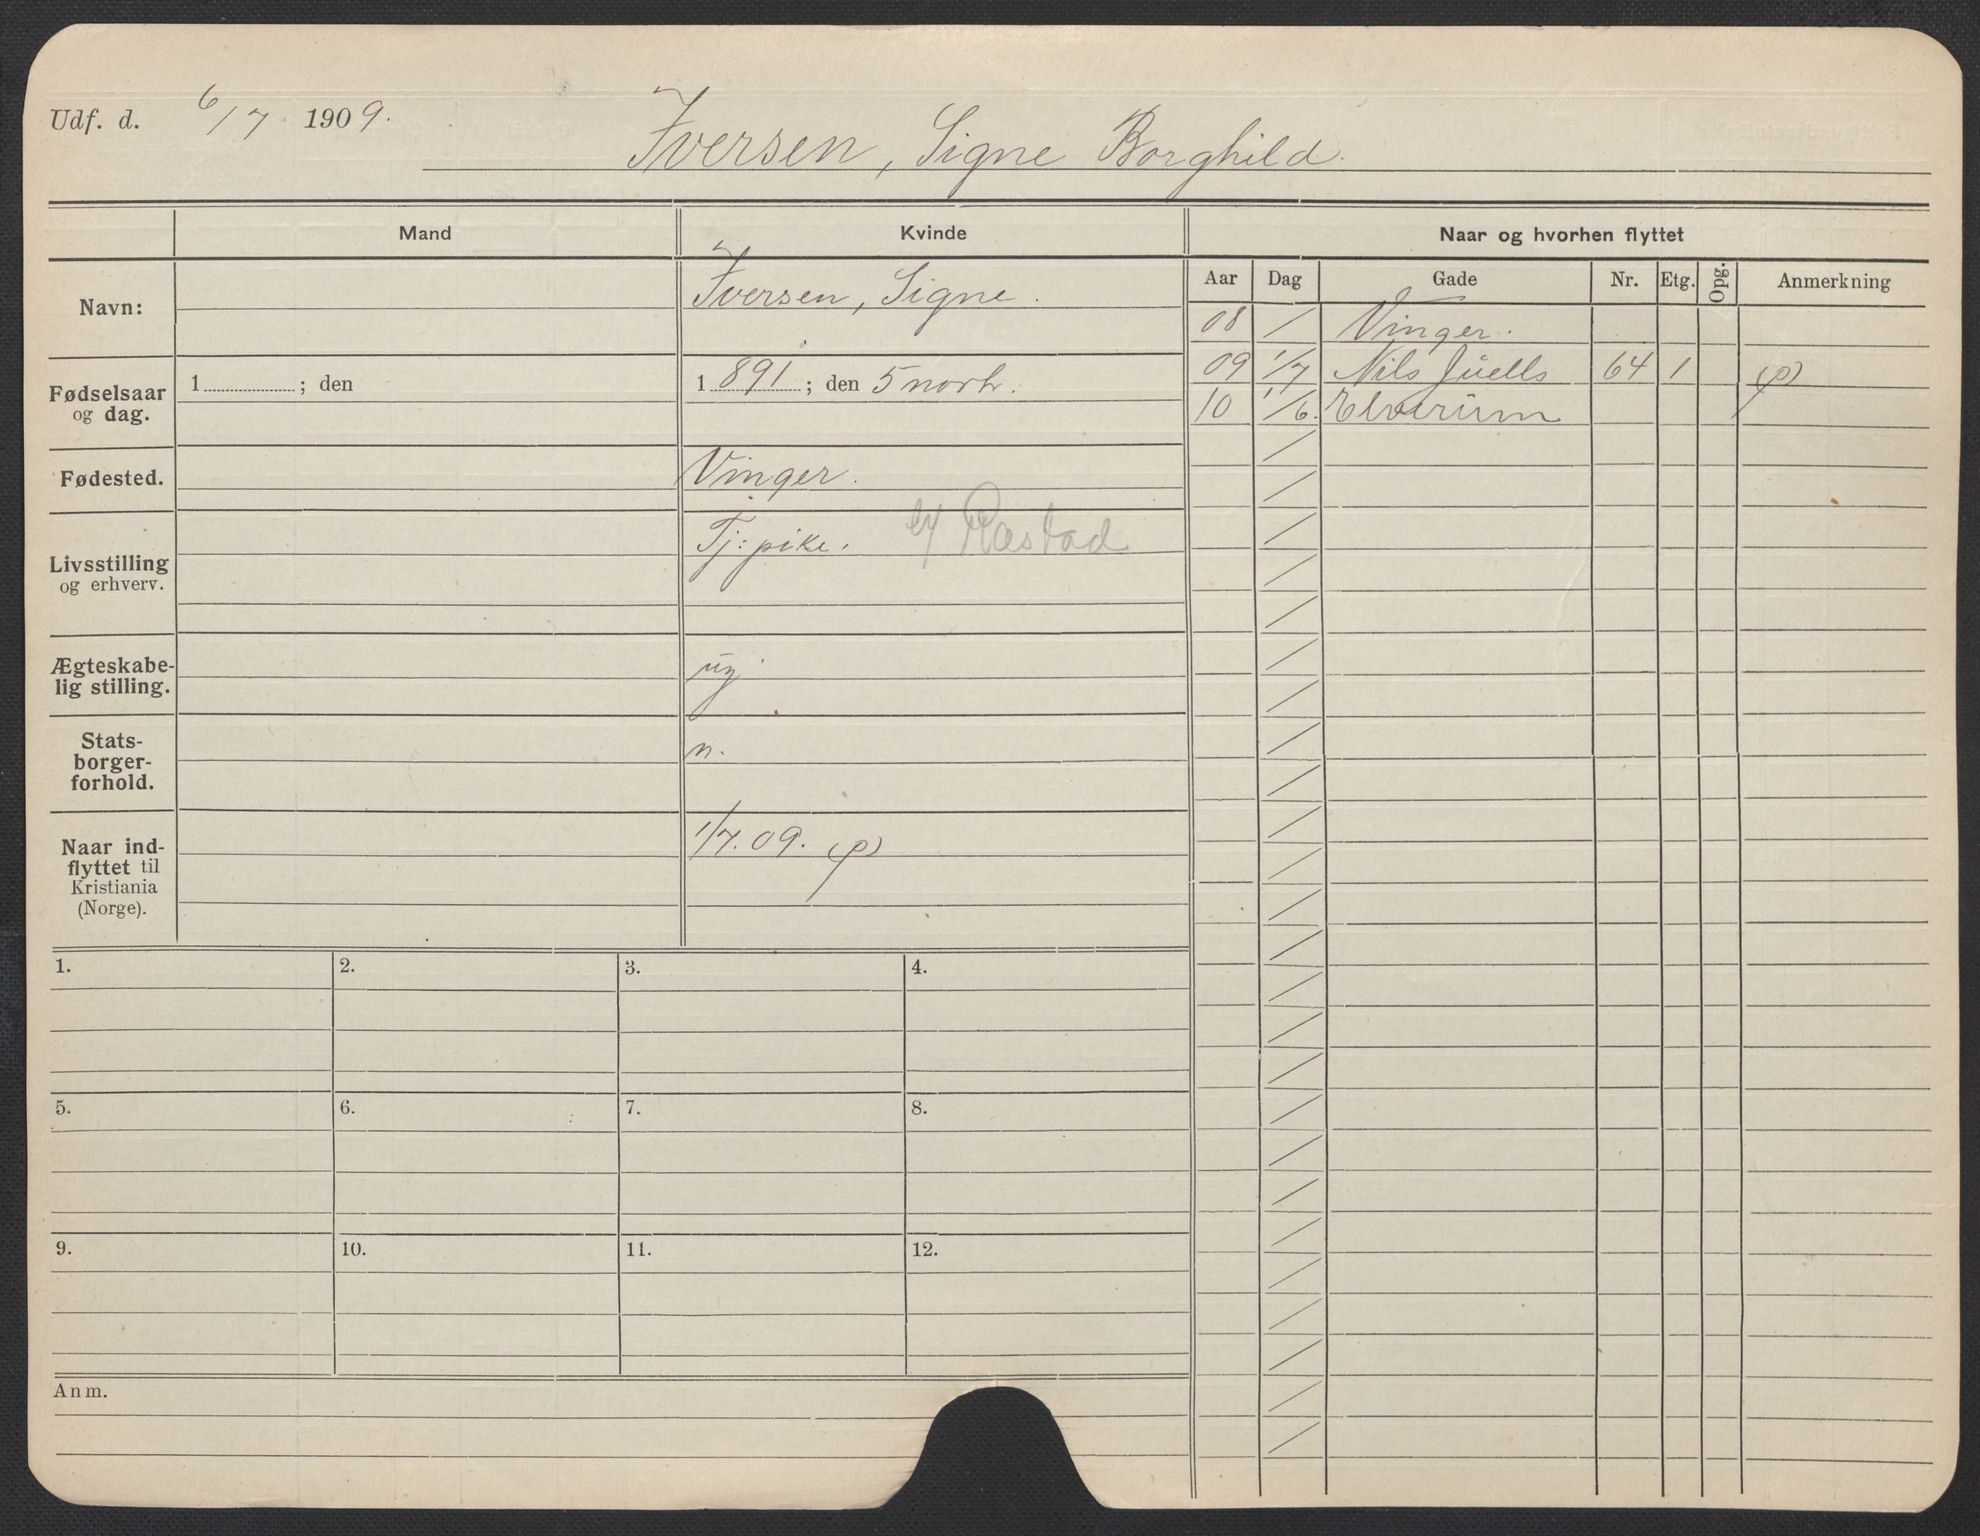 Udf. d. 6/7 1909.
Iversen, Signe Borghild.
Mand
Kvinde
Naar og hvorhen flyttet
Aar Dag Gade Nr. Etg. Opg. Anmerkning
Navn:
Iversen, Signe.
Fødselsaar
og dag.
1 ; den
1 891 ; den 5 novbr.
Fødested.
Vinger.
Livsstilling
og erhverv.
Tj: pike. Ræstad
Ægteskabe-
lig stilling.
ug.
Stats-
borger-
forhold.
n.
Naar ind-
flyttet til
Kristiania
(Norge).
1/7. 09. (p)
08 / Vinger.
09 1/7 Nils Juells 64 1 (p)
10 1/6. Elverum
1. 2. 3. 4.
5. 6. 7. 8.
9. 10. 11. 12.
Anm.